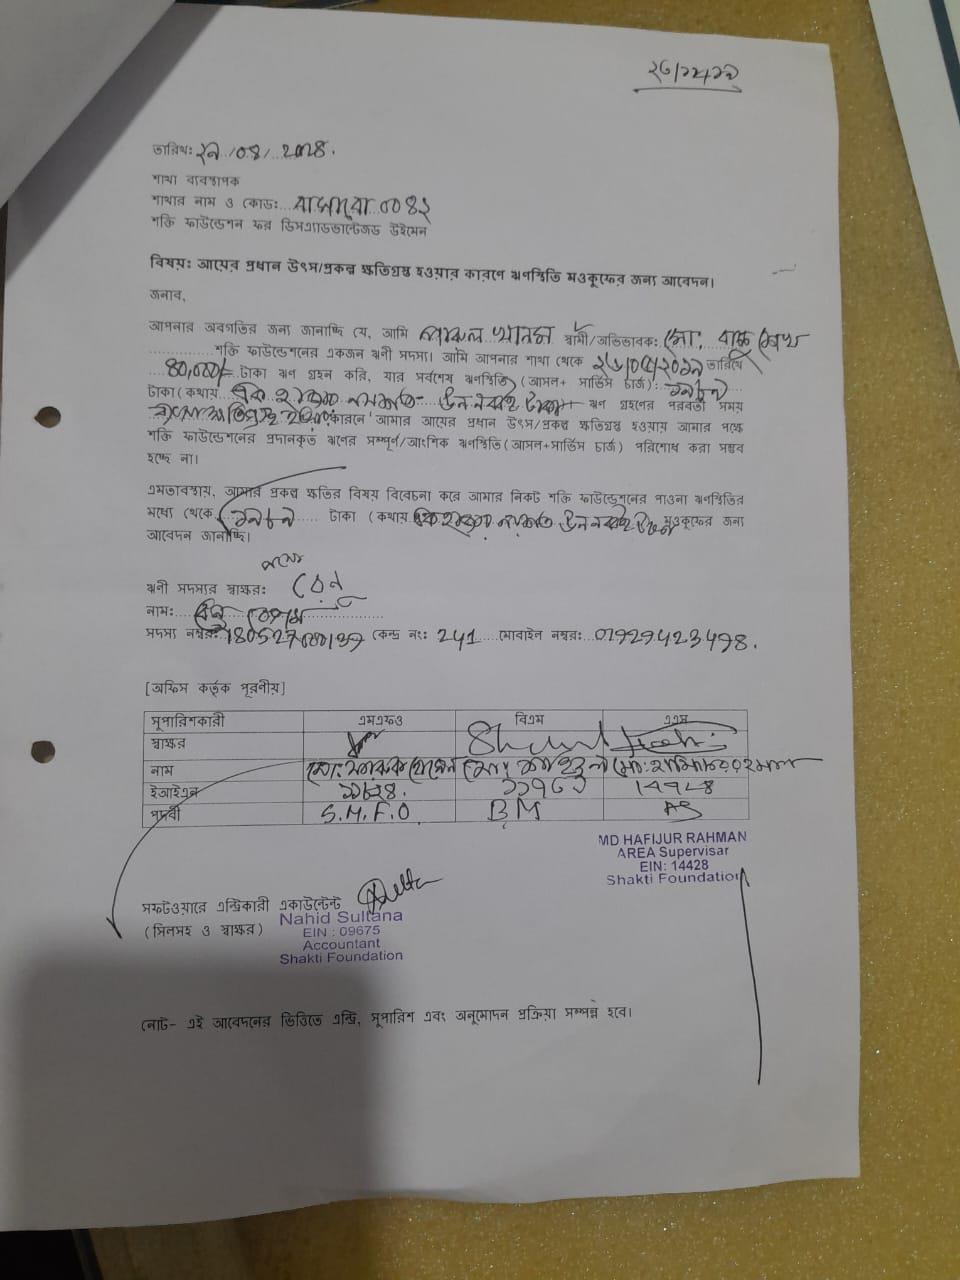 তারিখ: ২৯/০৪/২০২৪.
শাখা ব্যবস্থাপক
শাখার নাম ও কোড: ০০৪২
শক্তি ফাউন্ডেশন ফর ডিসএ্যাডভান্টেজড উইমেন
বিষয়: আয়ের প্রধান উৎস/প্রকল্প ক্ষতিগ্রস্ত হওয়ার কারণে ঋণস্থিতি মওকুফের জন্য আবেদন।
জনাব,
আপনার অবগতির জন্য জানাচ্ছি যে, আমি খানম স্বামী/অভিভাবক: মো: শেখ
শক্তি ফাউন্ডেশনের একজন ঋণী সদস্য। আমি আপনার শাখা থেকে তারিখে
40,000/= টাকা ঋণ গ্রহন করি, যার সর্বশেষ ঋণস্থিতি (আসল+ সার্ভিস চার্জ):
টাকা(কথায় এক হাজার নয়শত উননব্বই টাকা ঋণ গ্রহণের পরবর্তী সময়
কারনে আমার আয়ের প্রধান উৎস/প্রকল্প ক্ষতিগ্রস্ত হওয়ায় আমার পক্ষে
শক্তি ফাউন্ডেশনের প্রদানকৃত ঋণের সম্পূর্ণ/আংশিক ঋণস্থিতি(আসল+সার্ভিস চার্জ) পরিশোধ করা সম্ভব
হচ্ছে না।
এমতাবস্থায়, আমার প্রকল্প ক্ষতির বিষয় বিবেচনা করে আমার নিকট শক্তি ফাউন্ডেশনের পাওনা ঋণস্থিতির
মধ্যে থেকে টাকা (কথায় এক হাজার নয়শত উননব্বই মওকুফের জন্য
আবেদন জানাচ্ছি।
ঋণী সদস্যর স্বাক্ষর: রেনু
নাম: বেগম
সদস্য নম্বর: কেন্দ্র নং: 241 মোবাইল নম্বর: 01929423498.
[অফিস কর্তৃক পূরণীয়]
সুপারিশকারী এমএফও বিএম এএস
স্বাক্ষর
নাম মো: হাফিজুর রহমান
ইআইএন ১১৮২৪. 14428
পদবী S.M.F.O B.M AS
MD HAFIJUR RAHMAN
AREA Supervisar
EIN: 14428
Shakti Foundation
সফটওয়ারে এন্ট্রিকারী একাউন্টেন্ট
(সিলসহ ও স্বাক্ষর)
Nahid Sultana
EIN : 09675
Accountant
Shakti Foundation
নোট- এই আবেদনের ভিত্তিতে এন্ট্রি, সুপারিশ এবং অনুমোদন প্রক্রিয়া সম্পন্ন হবে।